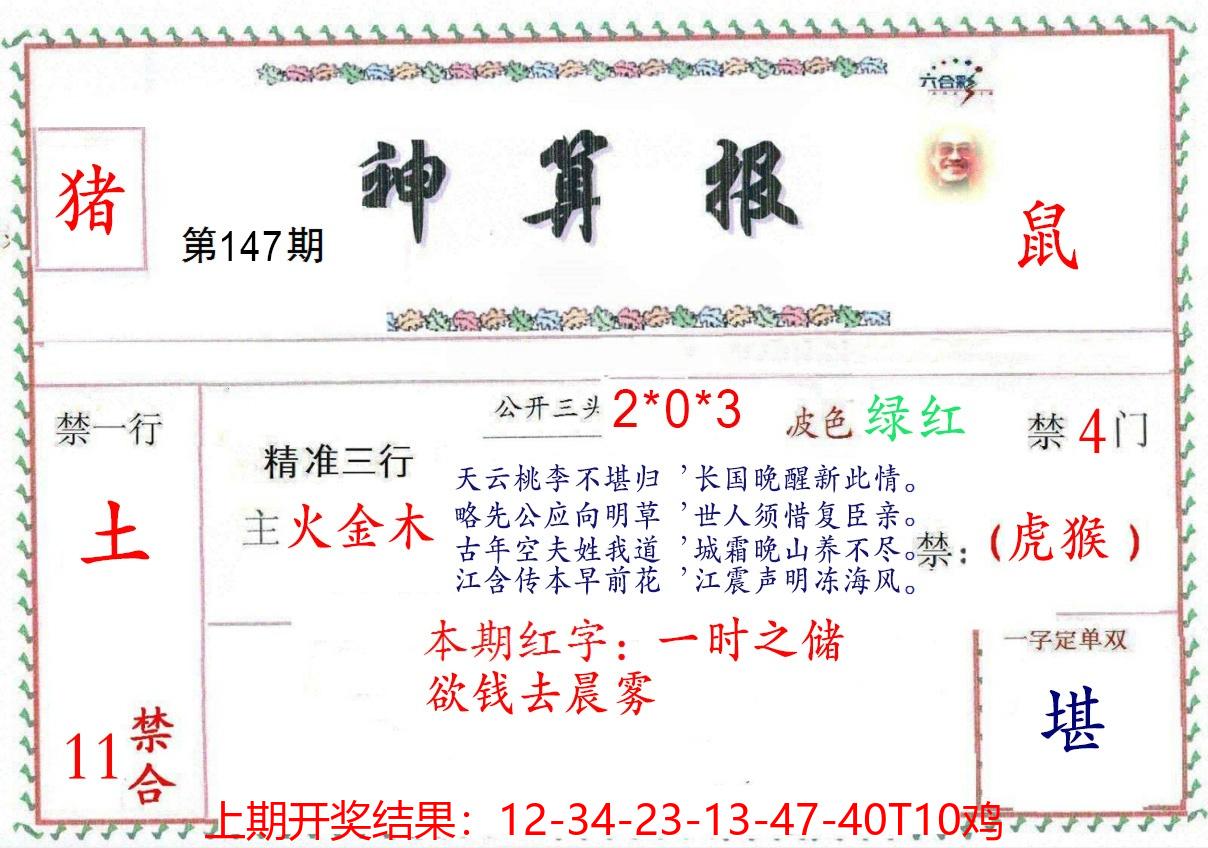 六合彩
神算报
猪
第147期
鼠
禁一行
土
11
禁合
公开三头 2*0*3
波色 绿红
禁4门
精准三行
主火金木
天云桃李不堪归 ’长国晚醒新此情。
略先公应向明草 ’世人须惜复臣亲。
古年空夫姓我道 ’城霜晚山养不尽。
江含传本早前花 ’江震声明冻海风。
禁：(虎猴)
本期红字：一时之储
欲钱去晨雾
一字定单双
堪
上期开奖结果：12-34-23-13-47-40T10鸡